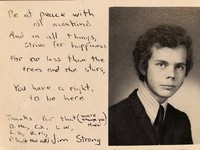 Be at peace with
all mankind
And in all things,
strive for happiness
For no less than the
trees and the stars,
You have a right
to be here
Thanks for that
Jim Strong